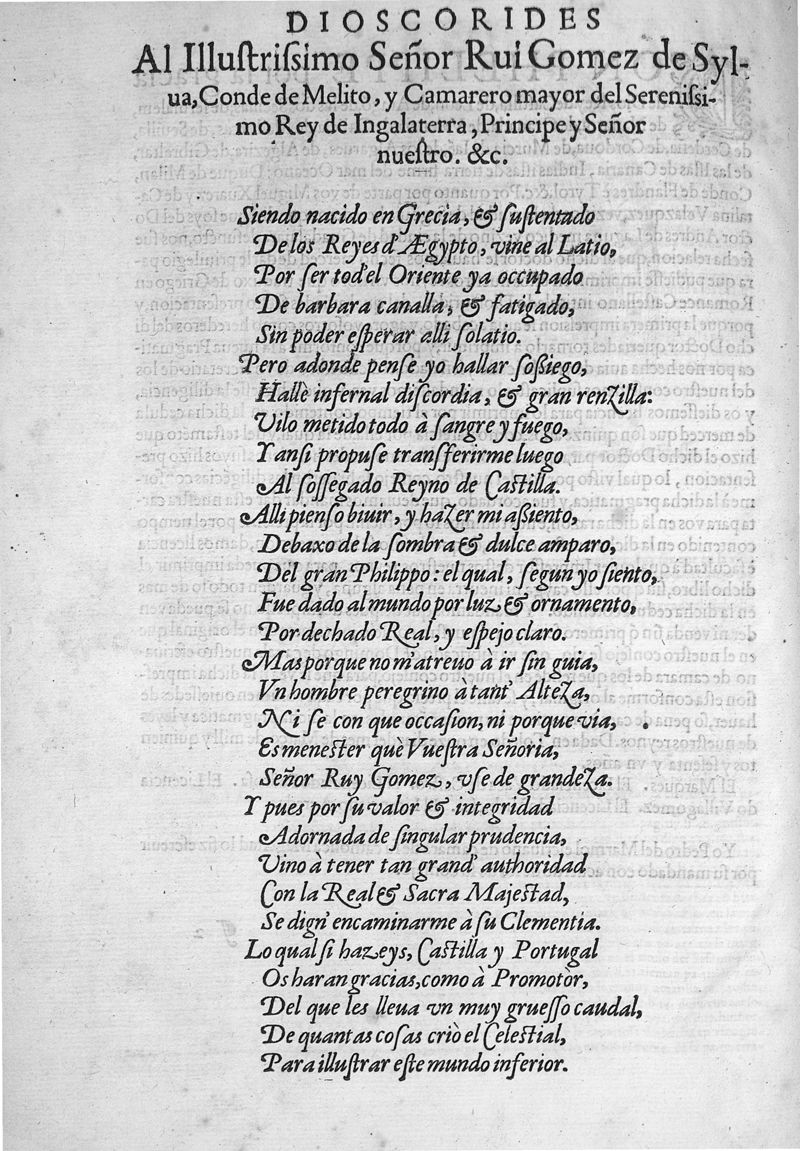 DIOSCORIDES
Al Illustrissimo Señor Rui Gomez de Syl-
ua, Conde de Melito, y Camarero mayor del Serenissi-
mo Rey de Ingalaterra, Principe y Señor
nuestro. &c.
Siendo nacido en Grecia, & sustentado
De los Reyes d'Ægypto, vine al Latio,
Por ser tod'el Oriente ya occupado
De barbara canalla, & fatigado,
Sin poder esperar alli solatio.
Pero adonde pense yo hallar sossiego,
Hallè infernal discordia, & gran renzilla:
Vilo metido todo à sangre y fuego,
Y ansi propuse transferirme luego
Al sossegado Reyno de Castilla.
Alli pienso biuir, y hazer mi assiento,
Debaxo de la sombra & dulce amparo,
Del gran Philippo: el qual, segun yo siento,
Fue dado al mundo por luz & ornamento,
Por dechado Real, y espejo claro.
Mas porque no m'atreuo à ir sin guia,
Vn hombre peregrino à tant' Alteza,
Ni se con que occasion, ni porque via,
Es menester què Vuestra Señoria,
Señor Ruy Gomez, vse de grandeza.
Y pues por su valor & integridad
Adornada de singular prudencia,
Vino à tener tan grand' authoridad
Con la Real & Sacra Majestad,
Se dign' encaminarme à su Clementia.
Lo qual si hazeys, Castilla y Portugal
Os haran gracias, como à Promotòr,
Del que les lleua vn muy gruesso caudal,
De quantas cosas criò el Celestial,
Para illustrar este mundo inferior.